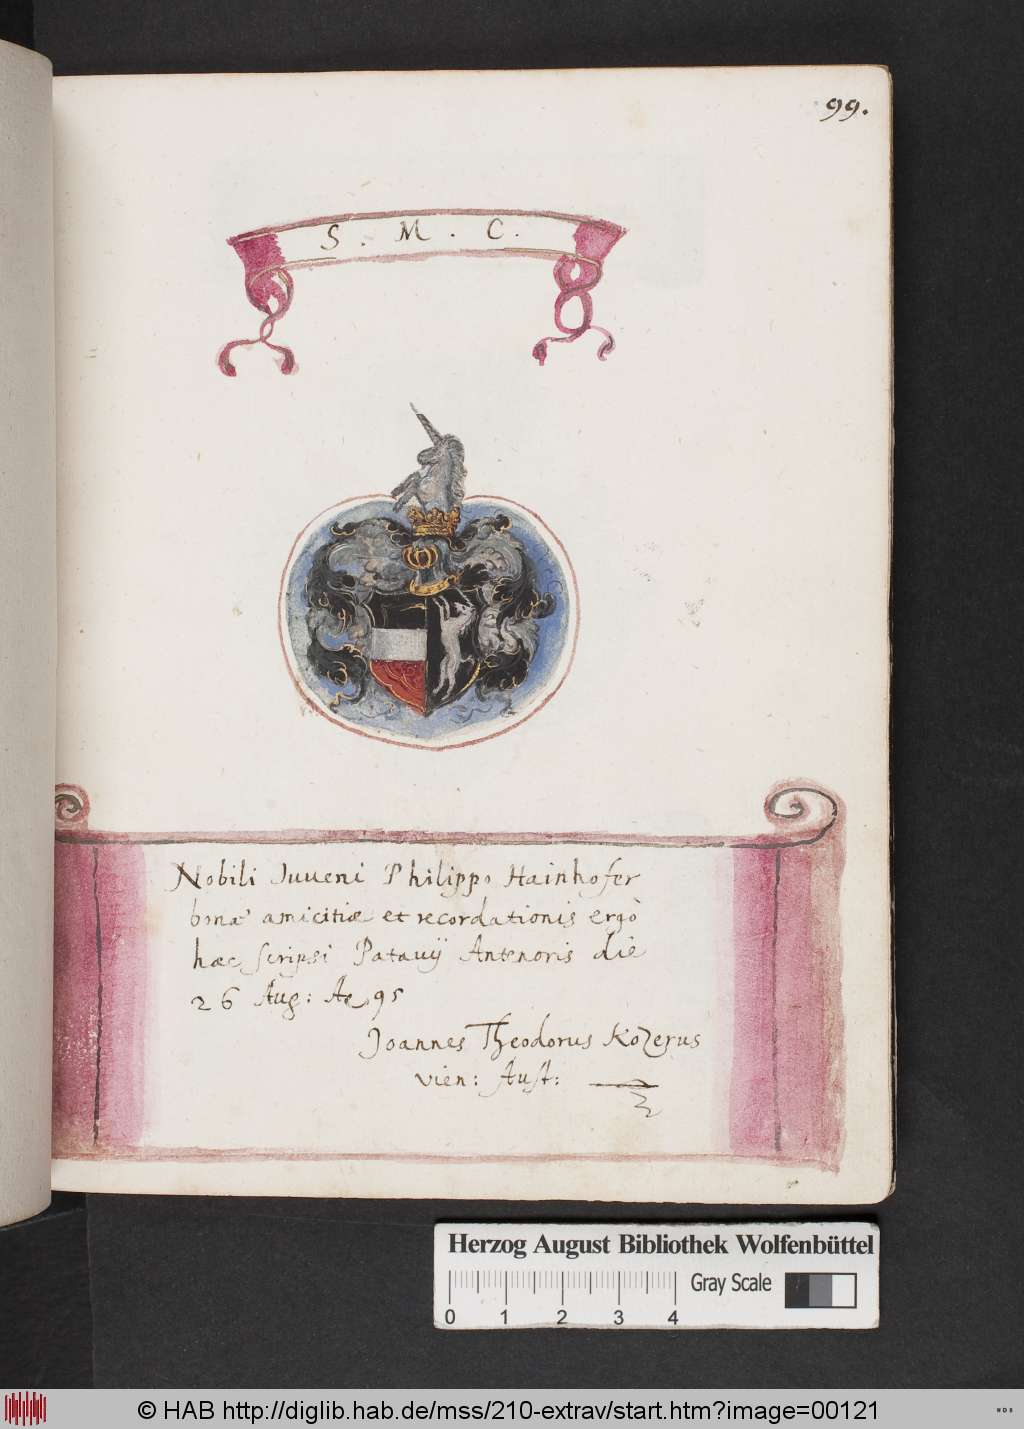 99.
S. M. C.
Nobili Juueni Philippo Hainhofer
bonæ amicitiæ et recordationis ergò
hæc scripsi Patauij Antenoris die
26 Aug: Aº 95
Joannes Theodorus Kozerus
vien: Aust:
Herzog August Bibliothek Wolfenbüttel
Gray Scale
0 1 2 3 4
© HAB http://diglib.hab.de/mss/210-extrav/start.htm?image=00121